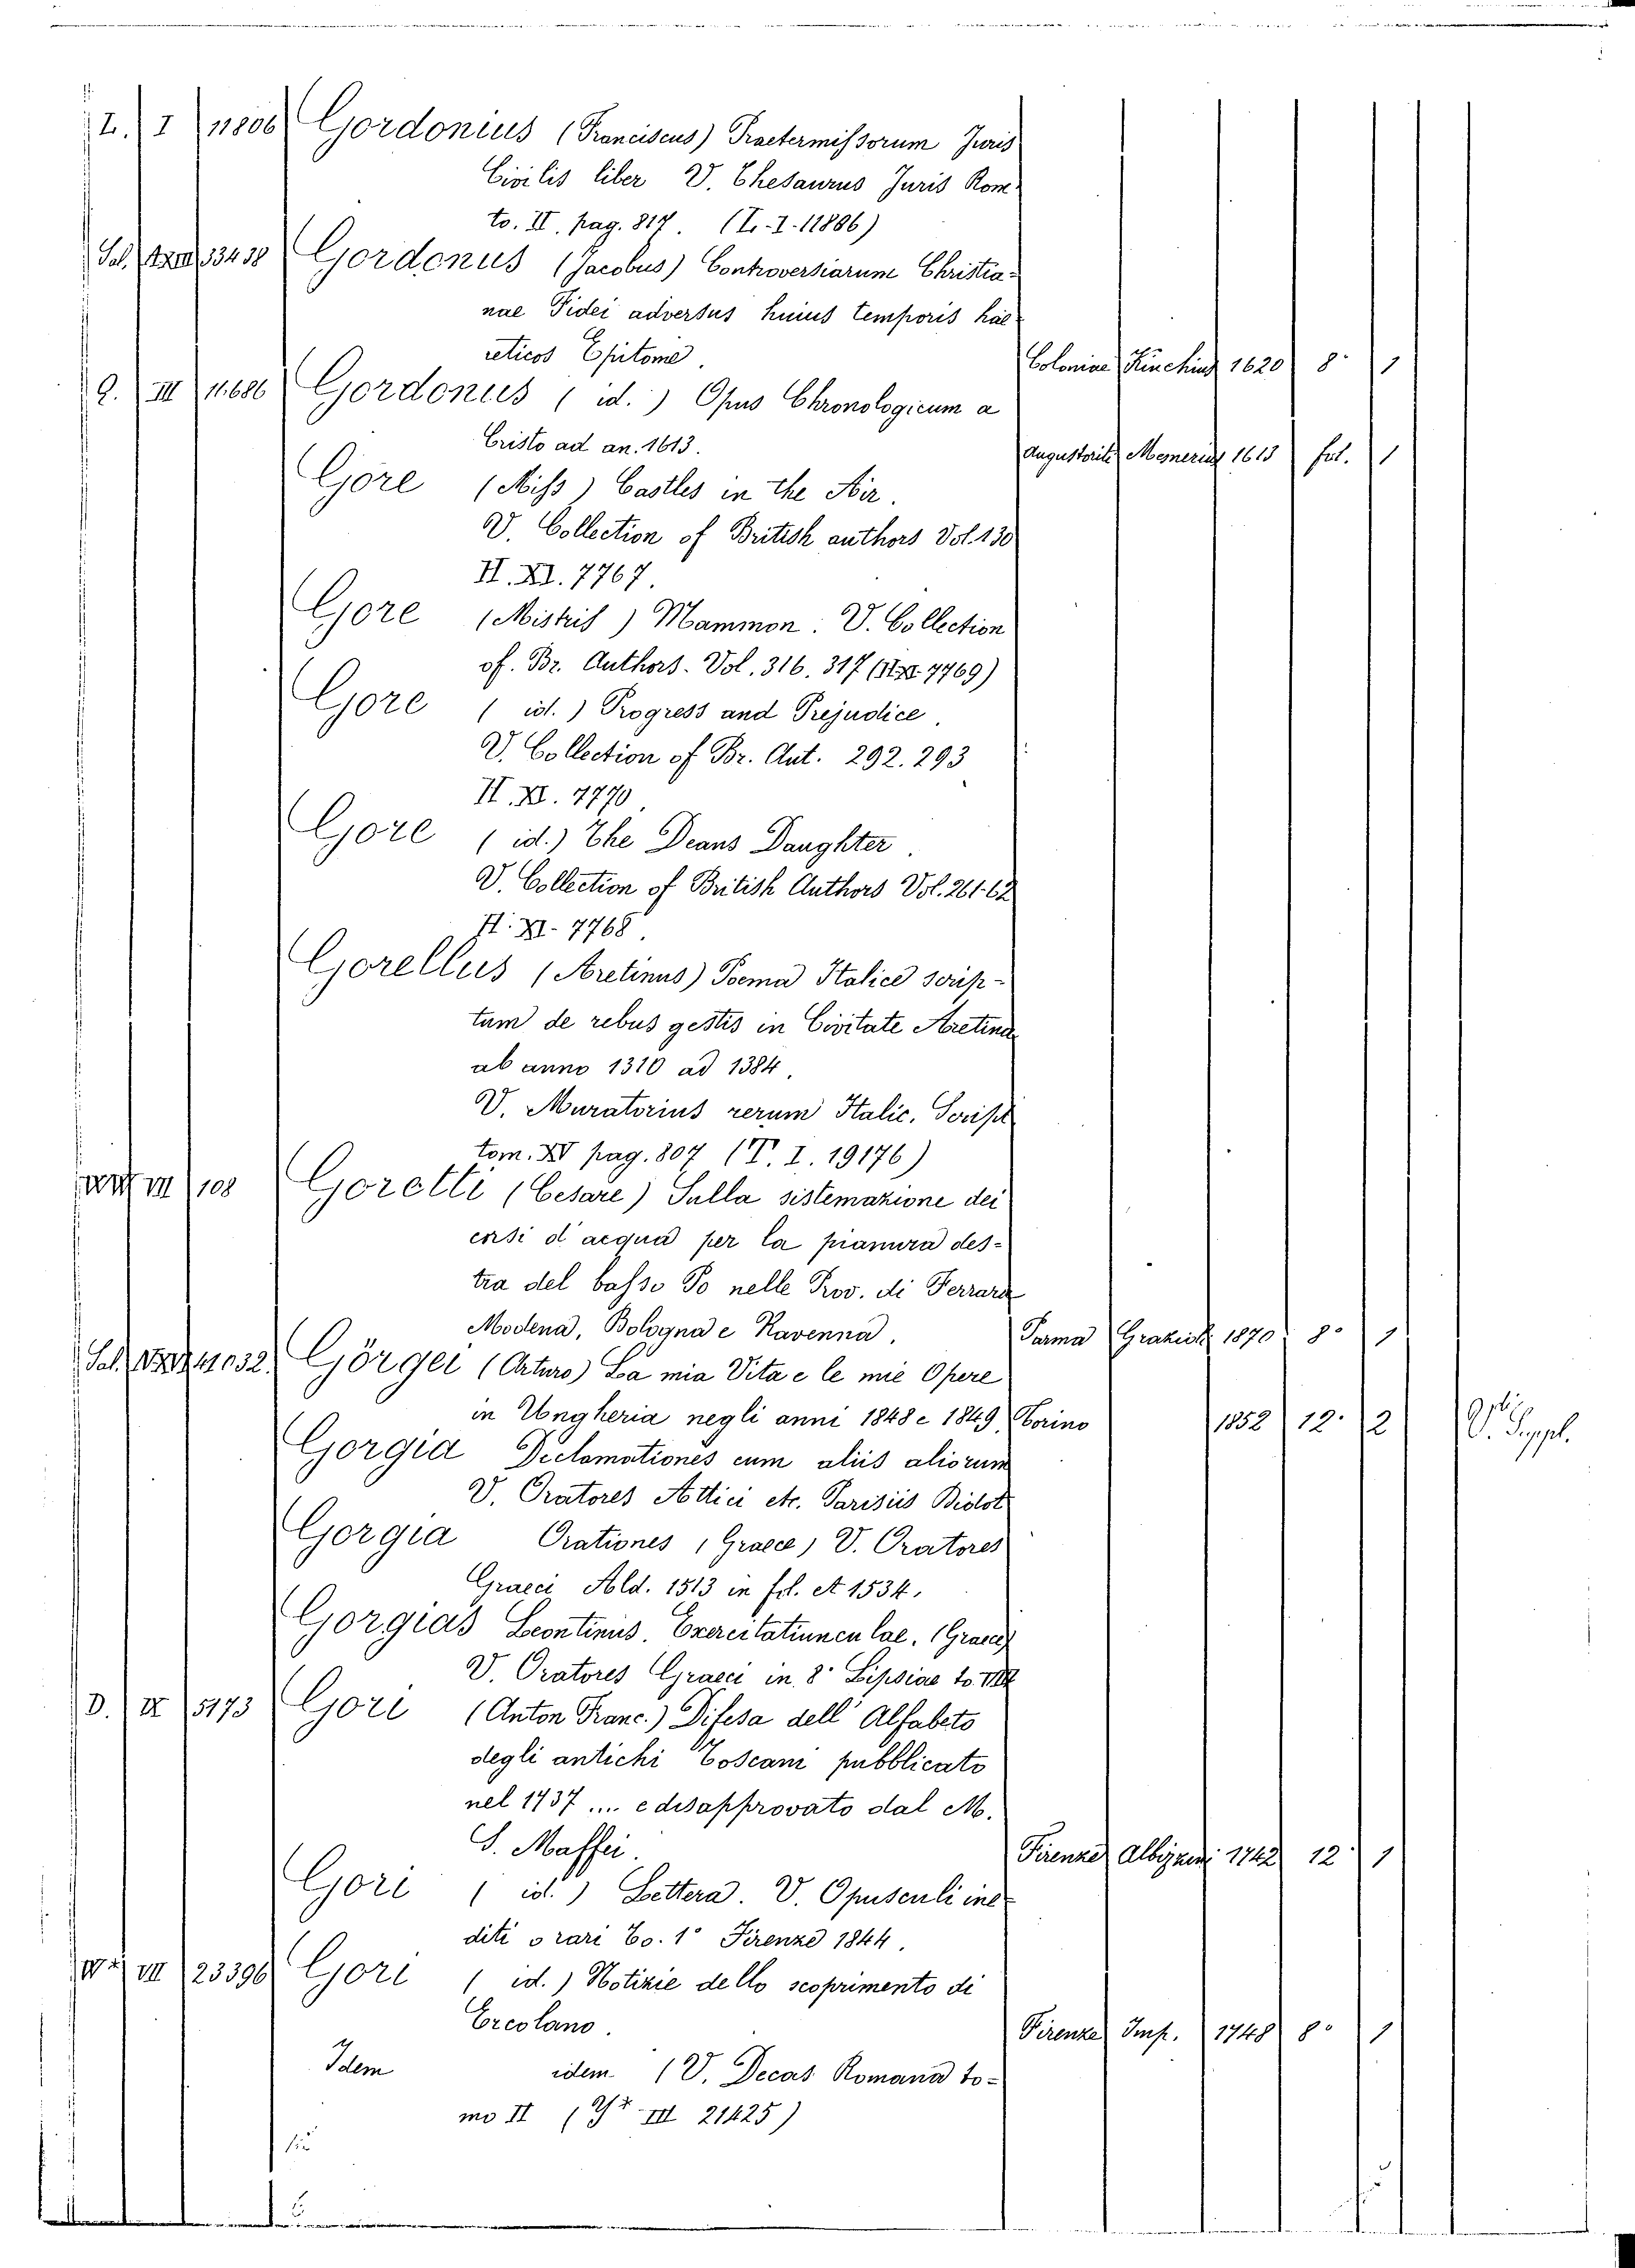 L. I 11806 Gordonius (Franciscus) Praetermissorum Juris
Civilis liber V. Thesaurus Juris Rom.
to. II. pag. 817. (L. I. 11806)
Sal. 33438 Gordonus (Jacobus) Controversiarum Christia-
nae Fidei adversus huius temporis hae-
reticos Epitome. Coloniae Kinchius 1620 8° 1
Q. III 11.686 Gordonus (id.) Opus Chronologicum a
Cristo ad an. 1613. Augustorit. 1613 fol. 1
Gore (Miss) Castles in the Air.
V. Collection of British authors Vol. 130
II. XI. 7767.
Gore (Mistris) Mammon. V. Collection
of. Br. Authors. Vol. 316. 317 (II XI. 7769)
Gore (id.) Progress and Prejudice.
V. Collection of Br. Aut. 292. 293
II. XI. 7770
Gore (id.) The Deans Daughter.
V. Collection of British Authors Vol. 261-62
II. XI. 7768.
Gorellus (Aretinus) Poema Italice scrip-
tum de rebus gestis in Civitate Aretina
ab anno 1310 ad 1384.
V. Muratorius rerum Italic. Script
tom. XV pag. 807 (T. I. 19176)
VII 108 Goretti (Cesare) Sulla sistemazione dei
corsi d'acqua per la pianura des-
tra del basso Po nelle Prov. di Ferrara
Modena, Bologna e Ravenna. Parma 1870 8° 1
Sal. 41032. Görgei (Arturo) La mia Vita e le mie Opere
in Ungheria negli anni 1848 e 1849. Torino 1852 12° 2 V. Suppl.
Gorgia Declamationes cum aliis aliorum
V. Oratores Attici etc. Parisiis Didot
Gorgia Orationes (Graece) V. Oratores
Graeci Ald. 1513 in fol. et 1534.
Gorgias Leontinus. Exercitatiunculae. (Graece)
V. Oratores Graeci in 8° Lipsiae to. VIII
D. IX 5173 Gori (Anton Franc.) Difesa dell'Alfabeto
degli antichi Toscani pubblicato
nel 1737 .... e disapprovato dal M.
S. Maffei. Firenze Albizzini 1742 12° 1
Gori (id.) Lettera. V. Opusculi ine-
diti o rari To. 1° Firenze 1844.
VII 23396 Gori (id.) Notizie dello scoprimento di
Ercolano. Firenze Imp. 1748 8° 1
Idem idem (V. Decas Romana to-
mo II ( III 21425)